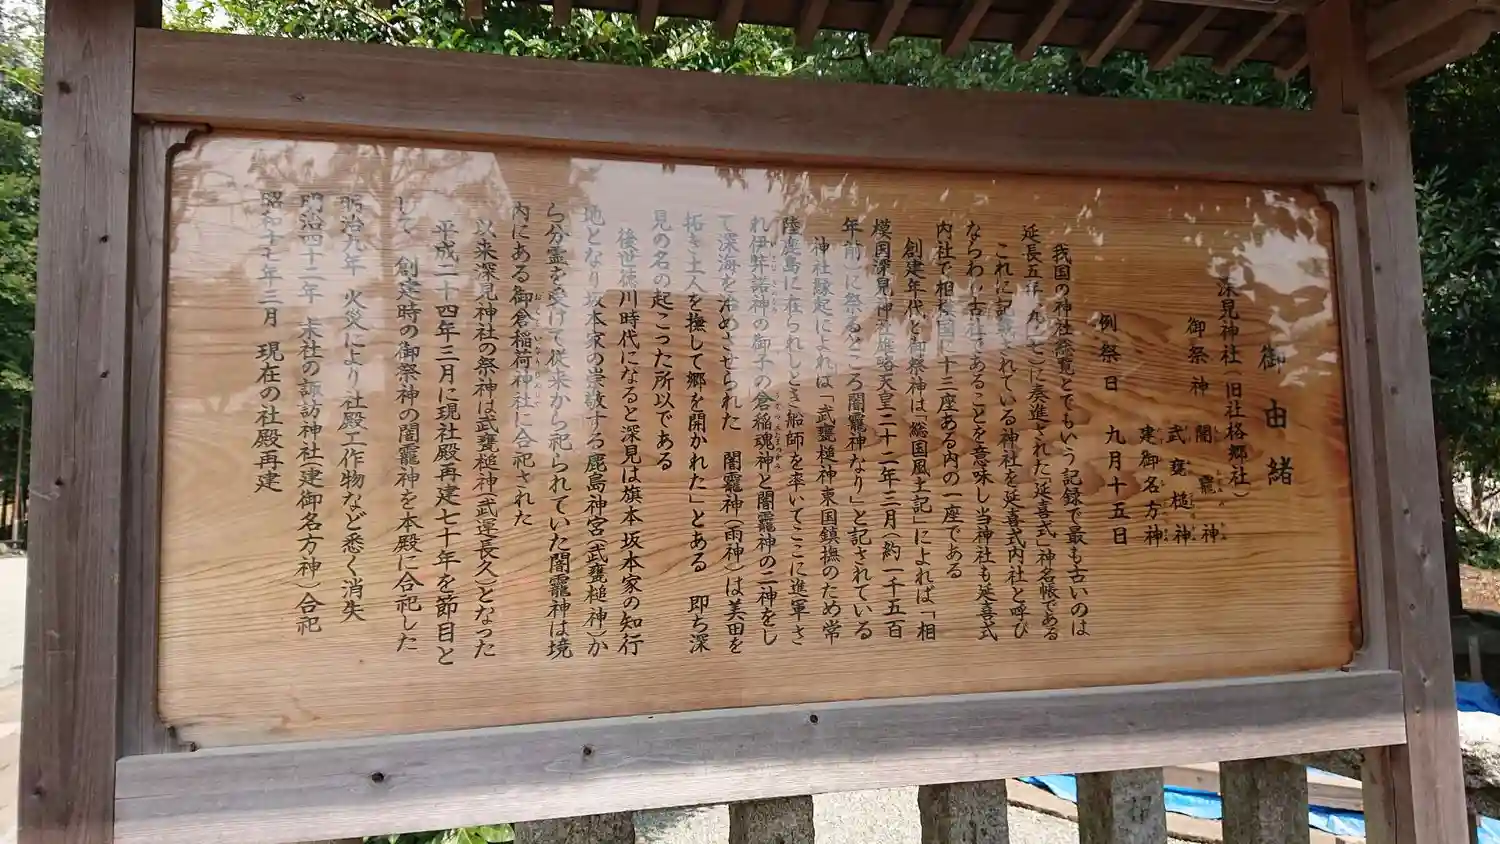 御由緒
深見神社(旧社格郷社)
御祭神 闇龗神
武甕槌神
建御名方神
例祭日 九月十五日
我国の神社総覧とでもいう記録で最も古いのは
延長五年(九二七)に奏進された「延喜式」神名帳である
これに記載されている神社を延喜式内社と呼び
ならわし古社であることを意味し当神社も延喜式
内社で相模国十三座ある内の一座である
創建年代と御祭神は「総国風土記」によれば「相
模国深見神社雄略天皇二十二年三月(約一千五百
年前)に祭るところ闇龗神なり」と記されている
神社縁起によれば「武甕槌神東国鎮撫のため常
陸鹿島に在られしとき船師を率いてここに進軍さ
れ伊弉諾神の御子の倉稲魂神と闇龗神の二神をし
て深海を治めさせられた 闇龗神(雨神)は美田を
拓き土人を撫して郷を開かれた」とある 即ち深
見の名の起こった所以である
後世徳川時代になると深見は旗本坂本家の知行
地となり坂本家の崇敬する鹿島神宮(武甕槌神)か
ら分霊を受けて従来から祀られていた闇龗神は境
内にある御倉稲荷神社に合祀された
以来深見神社の祭神は武甕槌神(武運長久)となった
平成二十四年三月に現社殿再建七十年を節目と
して 創建時の御祭神の闇龗神を本殿に合祀した
明治九年 火災により社殿工作物など悉く消失
明治四十二年 末社の諏訪神社(建御名方神)合祀
昭和十七年三月 現在の社殿再建